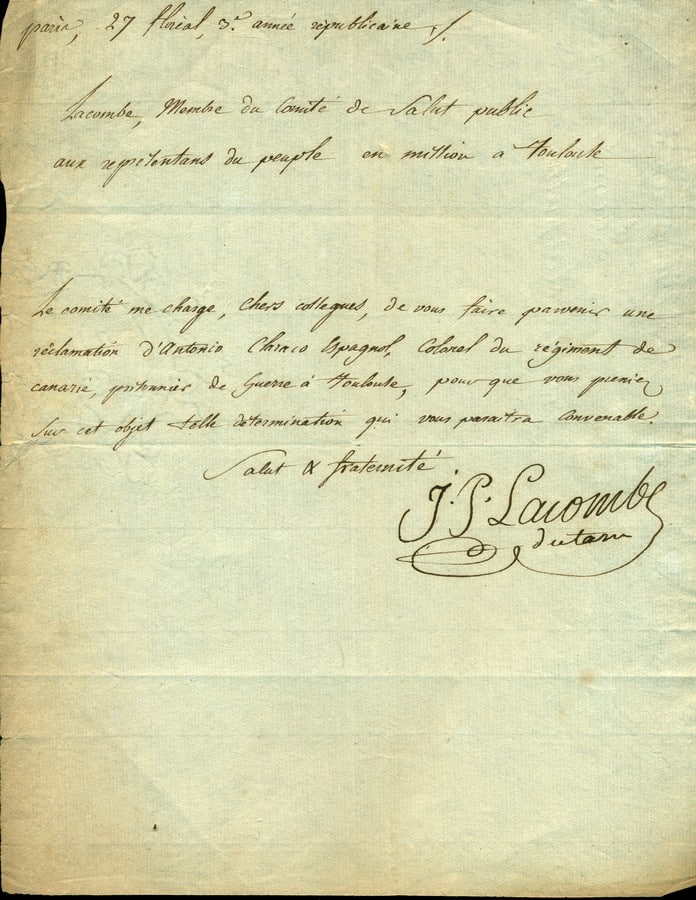 paris, 27 floréal, 3.e année républicaine ./.
Lacombe, Membre du Comité de Salut public
aux représentans du peuple en mission à Toulouse
Le comité me charge, chers collegues, de vous faire parvenir une
réclamation d'Antonio Espagnol, Colonel du régiment de
canarie, prisonnier de Guerre à Toulouse, pour que vous preniez
sur cet objet telle détermination qui vous paraitra convenable.
Salut & fraternité
J. P. Lacombe
du tarn